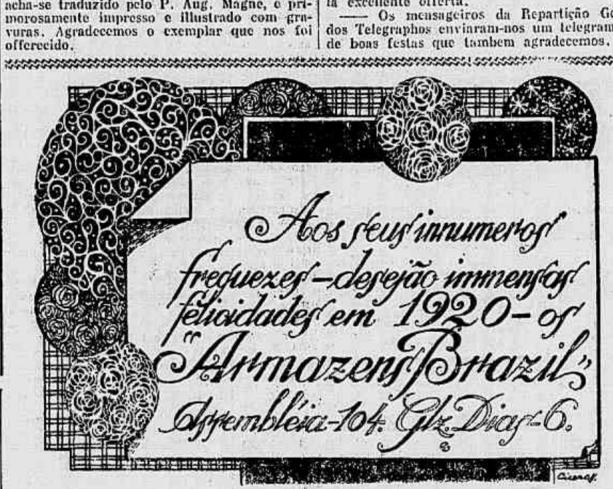 acha-se traduzido pelo P. Aug. Magne, e pri-
morosamente impresso e illustrado com gra-
vuras. Agradecemos o exemplar que nos foi
offerecido.
la excellente offerta.
—— Os mensageiros da Repartição Ge
dos Telegraphos enviaram-nos um telegram
de boas festas que tambem agradecemos.
Aos seus innumeros
freguezes – desejão immensas
felicidades em 1920 – os
"Armazens Brazil"
Assembléia-104. Glz. Dias-6.